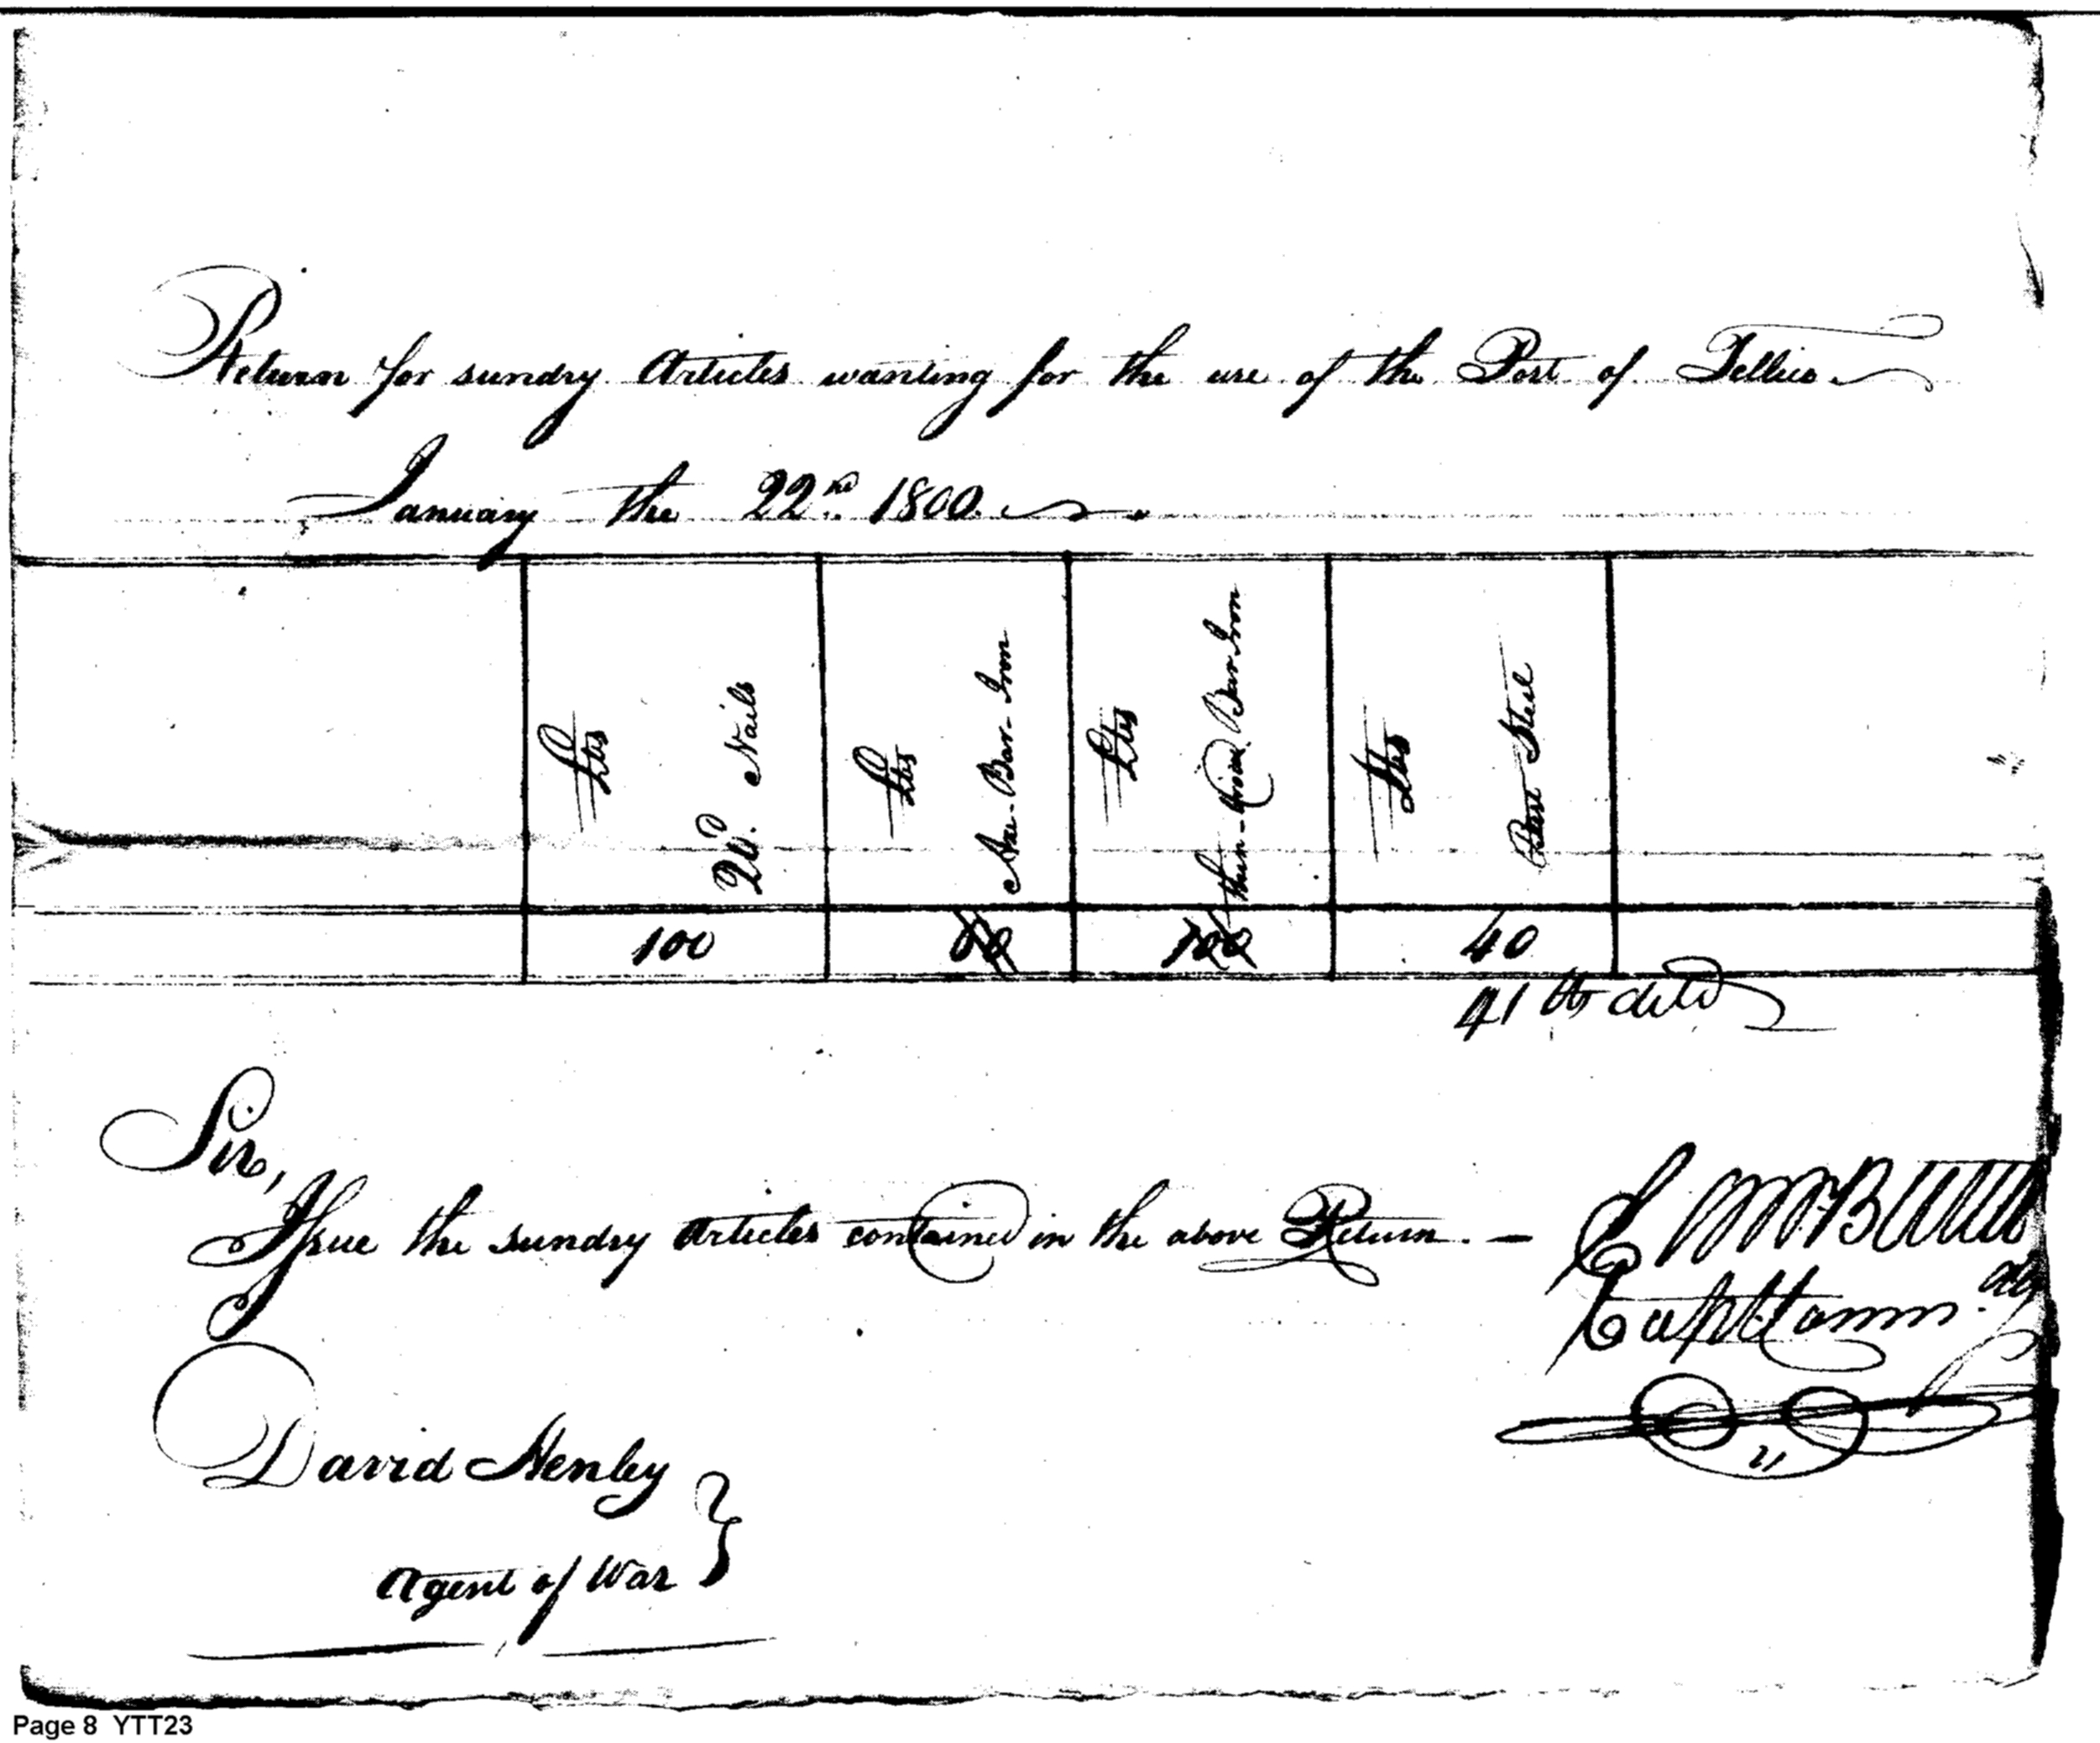 Return for sundry Articles wanting for the use of the Post of Tellico
January the 22nd 1800
lbs 20d. Nails
lbs Axe-Bar-Iron
lbs thin-broad Bar Iron
lbs Best Steel
100
60
100
40
41 lb deld
Sir,
Issue the sundry Articles contained in the above Return. —
Capt Comm.
David Henley
Agent of War
Page 8 YTT23